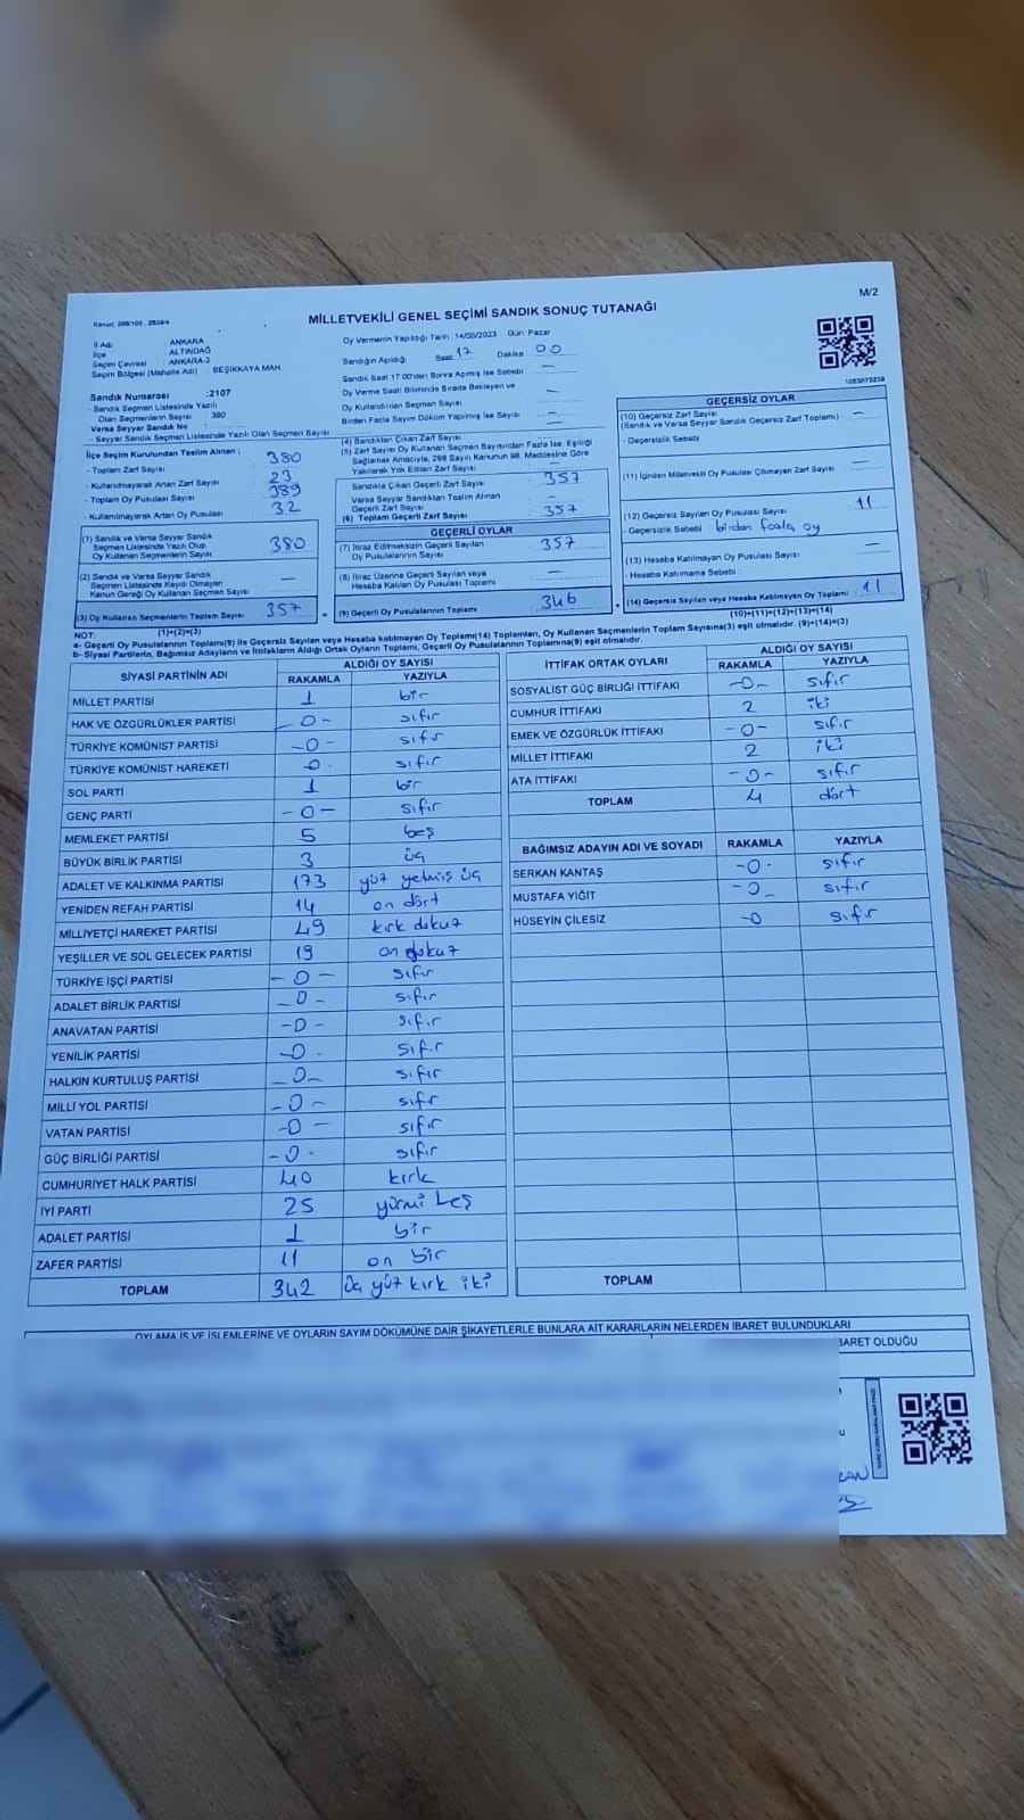 M/2
MİLLETVEKİLİ GENEL SEÇİMİ SANDIK SONUÇ TUTANAĞI
İl Adı ANKARA
İlçe ALTINDAĞ
Seçim Çevresi ANKARA-2
Seçim Bölgesi (Mahalle Adı) BEŞİKKAYA MAH.
Sandık Numarası :2107
Sandık Seçmen Listesinde Yazılı
Olan Seçmenlerin Sayısı 380
Varsa Seyyar Sandık No
- Seyyar Sandık Seçmen Listesinde Yazılı Olan Seçmen Sayısı
İlçe Seçim Kurulundan Teslim Alınan :
- Toplam Zarf Sayısı 380
- Kullanılmayarak Artan Zarf Sayısı 23
- Toplam Oy Pusulası Sayısı 389
- Kullanılmayarak Artan Oy Pusulası 32
(1) Sandık ve Varsa Seyyar Sandık
Seçmen Listesinde Yazılı Olup
Oy Kullanan Seçmenlerin Sayısı 380
(2) Sandık ve Varsa Seyyar Sandık
Seçmen Listesinde Kaydı Olmayan
Kanun Gereği Oy Kullanan Seçmen Sayısı —
(3) Oy Kullanan Seçmenlerin Toplam Sayısı 357
(1)+(2)=(3)
Oy Vermenin Yapıldığı Tarih : 14/05/2023 Gün: Pazar
Sandığın Açıldığı Saat 17 Dakika 00
Sandık Saat 17:00'den Sonra Açılmış İse Sebebi —
Oy Verme Saati Bitiminde Sırada Bekleyen ve
Oy Kullandırılan Seçmen Sayısı —
Birden Fazla Sayım Döküm Yapılmış İse Sayısı —
(4) Sandıktan Çıkan Zarf Sayısı
(5) Zarf Sayısı Oy Kullanan Seçmen Sayısından Fazla İse, Eşitliği
Sağlamak Amacıyla, 298 Sayılı Kanunun 98. Maddesine Göre
Yakılarak Yok Edilen Zarf Sayısı
Sandıkta Çıkan Geçerli Zarf Sayısı 357
Varsa Seyyar Sandıktan Teslim Alınan
Geçerli Zarf Sayısı —
(6) Toplam Geçerli Zarf Sayısı 357
GEÇERLİ OYLAR
(7) İtiraz Edilmeksizin Geçerli Sayılan
Oy Pusulalarının Sayısı 357
(8) İtiraz Üzerine Geçerli Sayılan veya
Hesaba Katılan Oy Pusulası Toplamı —
(9) Geçerli Oy Pusulalarının Toplamı 346
GEÇERSİZ OYLAR
(10) Geçersiz Zarf Sayısı
(Sandık ve Varsa Seyyar Sandık Geçersiz Zarf Toplamı) —
- Geçersizlik Sebebi
(11) İçinden Milletvekili Oy Pusulası Çıkmayan Zarf Sayısı —
(12) Geçersiz Sayılan Oy Pusulası Sayısı 11
Geçersizlik Sebebi birden fazla oy
(13) Hesaba Katılmayan Oy Pusulası Sayısı —
- Hesaba Katılmama Sebebi
(14) Geçersiz Sayılan veya Hesaba Katılmayan Oy Toplamı 11
(10)+(11)+(12)+(13)=(14)
NOT:
a- Geçerli Oy Pusulalarının Toplamı(9) ile Geçersiz Sayılan veya Hesaba katılmayan Oy Toplamı(14) Toplamları, Oy Kullanan Seçmenlerin Toplam Sayısına(3) eşit olmalıdır. (9)+(14)=(3)
b- Siyasi Partilerin, Bağımsız Adayların ve İttifakların Aldığı Ortak Oyların Toplamı, Geçerli Oy Pusulalarının Toplamına(9) eşit olmalıdır.
SİYASİ PARTİNİN ADI ALDIĞI OY SAYISI
RAKAMLA YAZIYLA
MİLLET PARTİSİ 1 bir
HAK VE ÖZGÜRLÜKLER PARTİSİ -0- sıfır
TÜRKİYE KOMÜNİST PARTİSİ -0- sıfır
TÜRKİYE KOMÜNİST HAREKETİ -0- sıfır
SOL PARTİ 1 bir
GENÇ PARTİ -0- sıfır
MEMLEKET PARTİSİ 5 beş
BÜYÜK BİRLİK PARTİSİ 3 üç
ADALET VE KALKINMA PARTİSİ 173 yüz yetmiş üç
YENİDEN REFAH PARTİSİ 14 on dört
MİLLİYETÇİ HAREKET PARTİSİ 49 kırk dokuz
YEŞİLLER VE SOL GELECEK PARTİSİ 19 on dokuz
TÜRKİYE İŞÇİ PARTİSİ -0- sıfır
ADALET BİRLİK PARTİSİ -0- sıfır
ANAVATAN PARTİSİ -0- sıfır
YENİLİK PARTİSİ -0- sıfır
HALKIN KURTULUŞ PARTİSİ -0- sıfır
MİLLİ YOL PARTİSİ -0- sıfır
VATAN PARTİSİ -0- sıfır
GÜÇ BİRLİĞİ PARTİSİ -0- sıfır
CUMHURİYET HALK PARTİSİ 40 kırk
İYİ PARTİ 25 yirmi beş
ADALET PARTİSİ 1 bir
ZAFER PARTİSİ 11 on bir
TOPLAM 342 üç yüz kırk iki
İTTİFAK ORTAK OYLARI ALDIĞI OY SAYISI
RAKAMLA YAZIYLA
SOSYALİST GÜÇ BİRLİĞİ İTTİFAKI -0- sıfır
CUMHUR İTTİFAKI 2 iki
EMEK VE ÖZGÜRLÜK İTTİFAKI -0- sıfır
MİLLET İTTİFAKI 2 iki
ATA İTTİFAKI -0- sıfır
TOPLAM 4 dört
BAĞIMSIZ ADAYIN ADI VE SOYADI RAKAMLA YAZIYLA
SERKAN KANTAŞ -0- sıfır
MUSTAFA YİĞİT -0- sıfır
HÜSEYİN ÇİLESİZ -0 sıfır
TOPLAM
OYLAMA İŞ VE İŞLEMLERİNE VE OYLARIN SAYIM DÖKÜMÜNE DAİR ŞİKAYETLERLE BUNLARA AİT KARARLARIN NELERDEN İBARET BULUNDUKLARI
BARET OLDUĞU